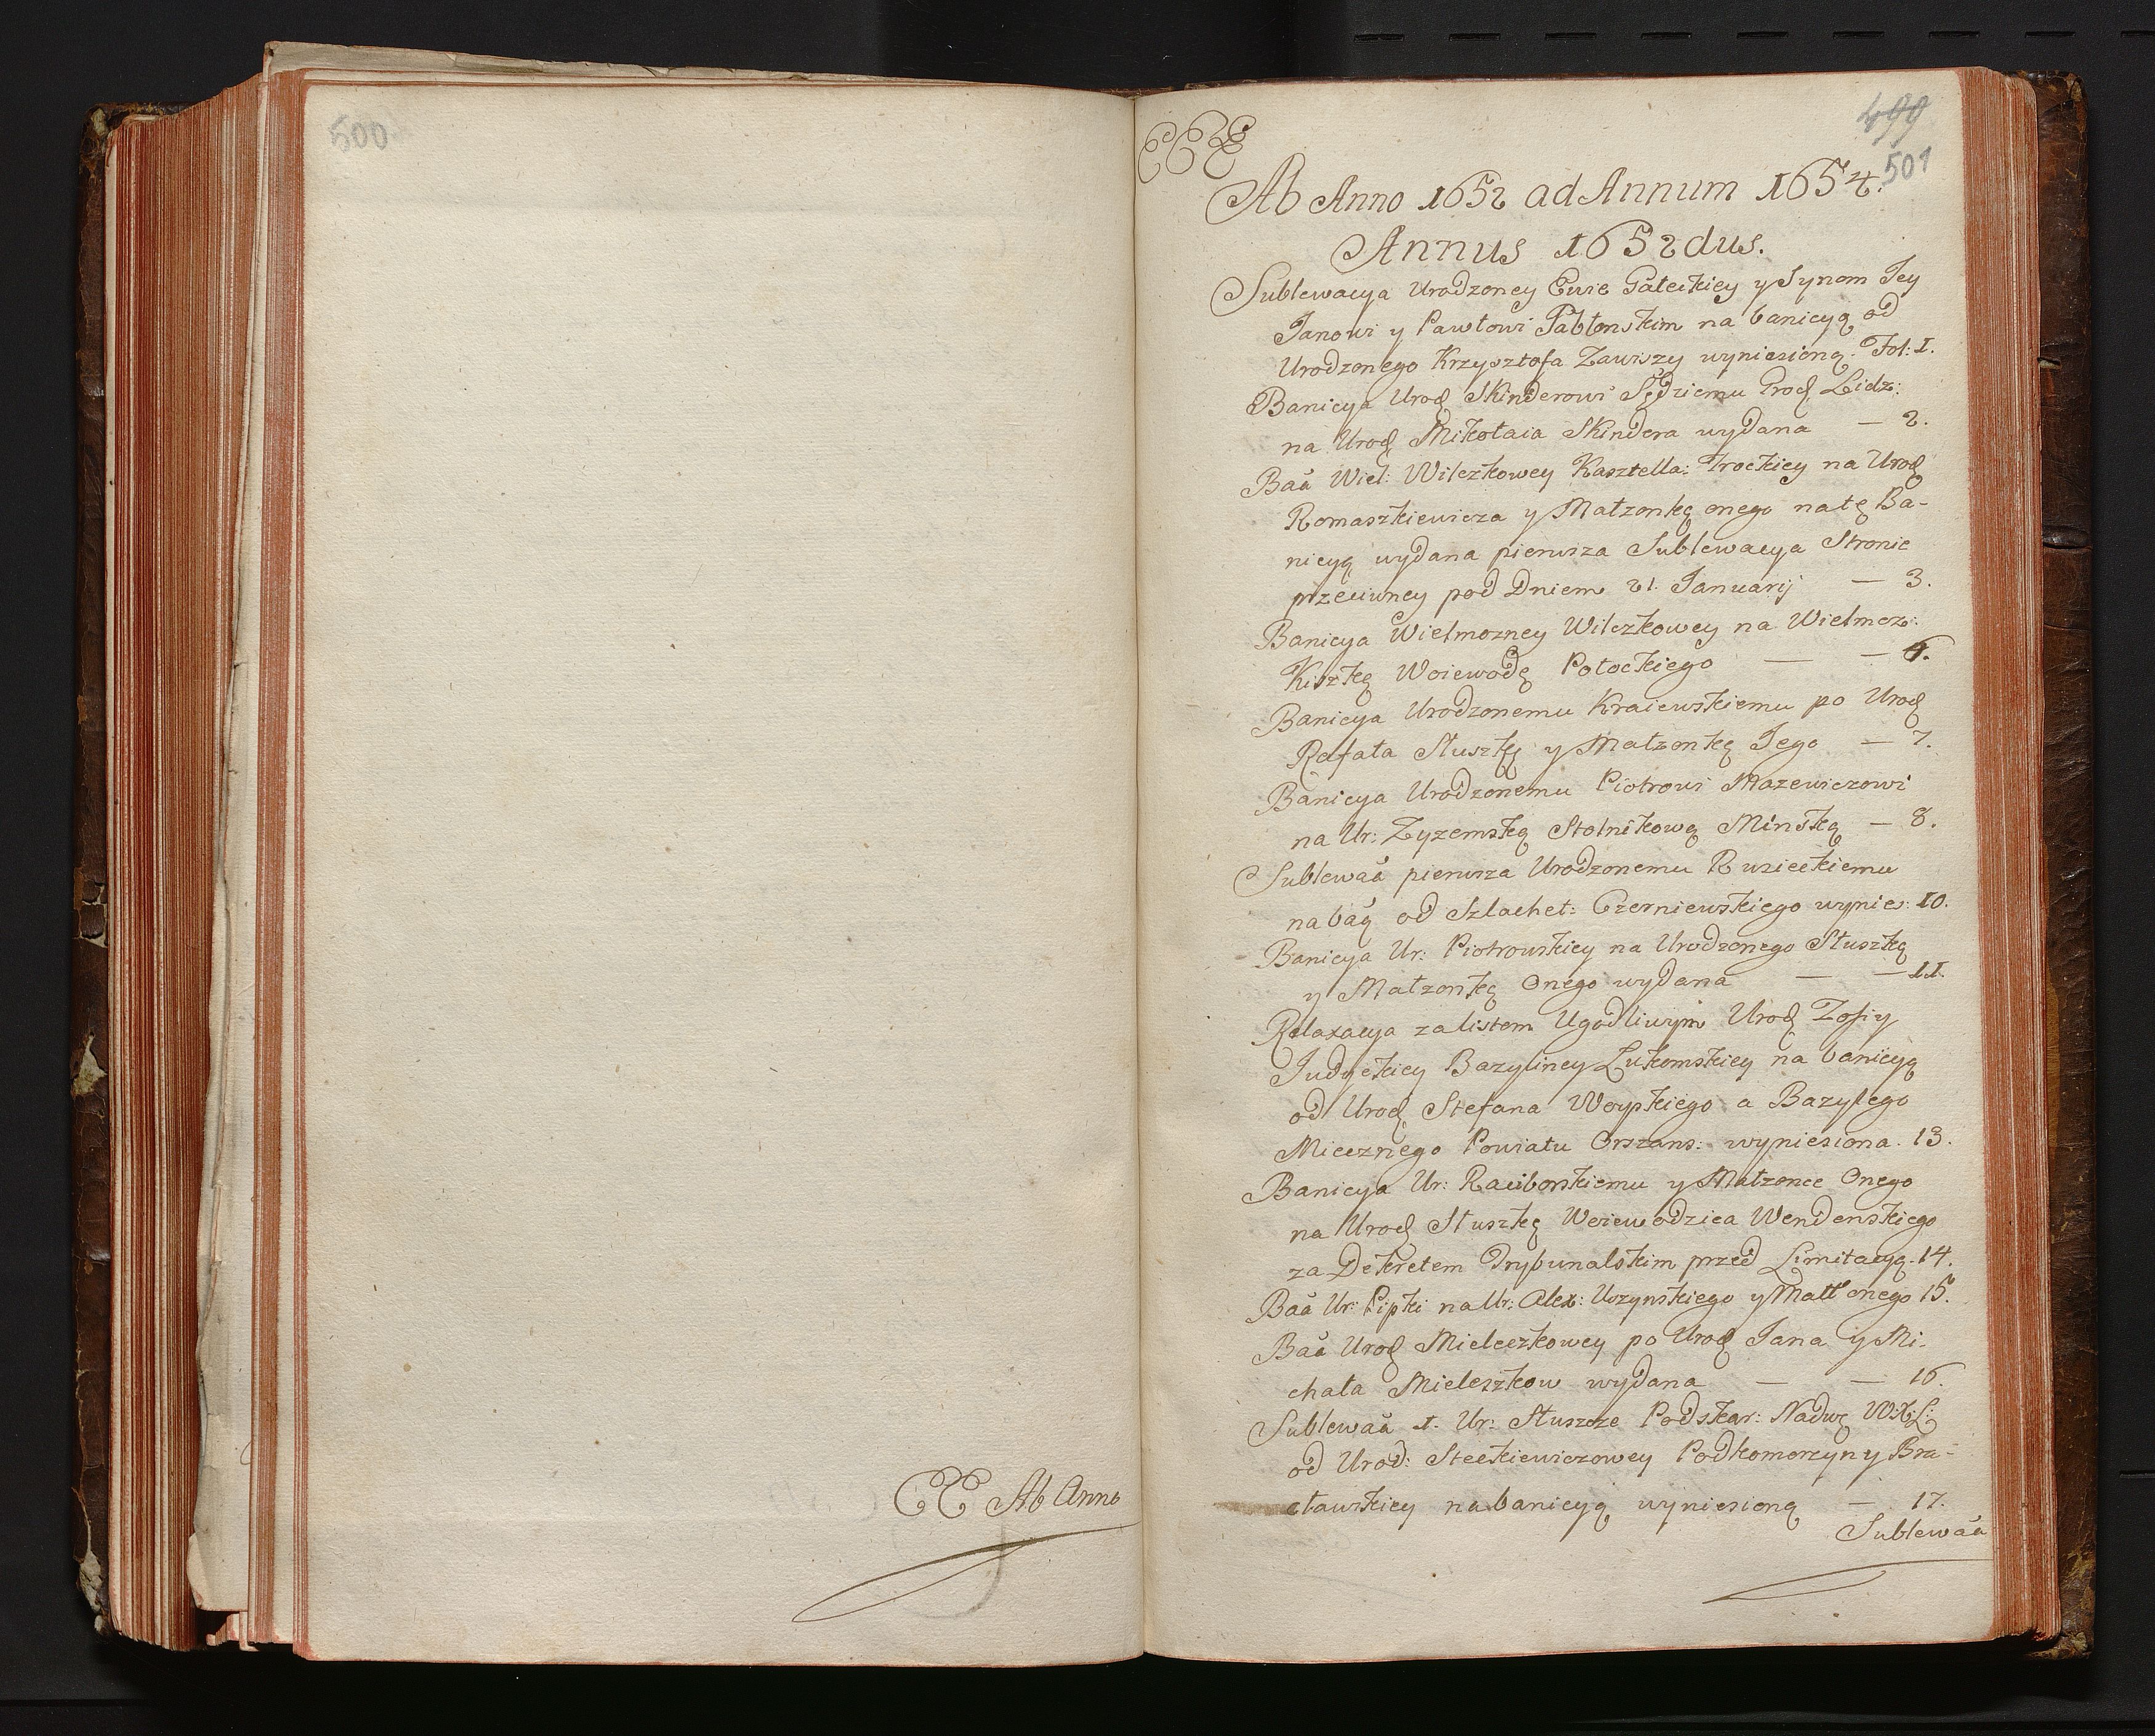 500
EE Ab Anno
EEE
499
501
Ab Anno 1652 ad Annum 1654.
Annus 1652dus.
Sublewacya Urodzoney Ewie Gałeckiey y Synom Jey
Janowi y Pawłowi Jabłonskim na banicyą od
Urodzonego Krzysztofa Zawiszy wyniesioną. Fol: 1.
Banicya Urod Skinderowi Sędziemu Grod Lidz:
na Urod Mikołaia Skindera wydana — 2.
Baa Wiel: Wilczkowey Kasztella: Trockiey na Urod
Romaszkiewicza y Małzonkę onego na tę Ba-
nicyą wydana pierwsza Sublewacya Stronie
przeciwney pod Dniem 21. Januarij — 3.
Banicya Wielmozney Wilczkowey na Wielmoz:
Kiszkę Woiewodę Połockiego — — 6.
Banicya Urodzonemu Kraiewskiemu po Urod
Rafała Słuszkę y Małzonkę Jego — 7.
Banicya Urodzonemu Piotrowi Mazewiczowi
na Ur: Zyzemską Stolnikową Minską — 8.
Sublewaa pierwsza Urodzonemu Rusieckiemu
na baą od Szlachet: Czerniewskiego wynies: 10.
Banicya Ur: Piotrowskiey na Urodzonego Słuszkę
y Małzonkę Onego wydana — — 11.
Relaxacya za listem Ugodliwym Urod Zofiy
Judyckiey Bazyliney Łukomskiey na banicyą
od Urod Stefana Woypskiego a Bazylego
Miecznego Powiatu Orszans: wyniesiona. 13.
Banicya Ur: Raciborskiemu y Małzonce Onego
na Urod Słuszkę Woiewodzica Wendenskiego
za Dekretem Trybunalskim przed Limitacyą. 14.
Baa Ur: Lipki na Ur: Alex: Uszynskiego y Małł onego 15.
Baa Urod Mieleszkowey po Urod Jana y Mi-
chała Mieleszkow wydana — — 16.
Sublewaa 1. Ur: Słuszcze Podskar: Nadw W:X:L:
od Urod: Steckiewiczowey Podkomorzyny Bra-
cławskiey na banicyą wyniesioną — 17.
Sublewaa